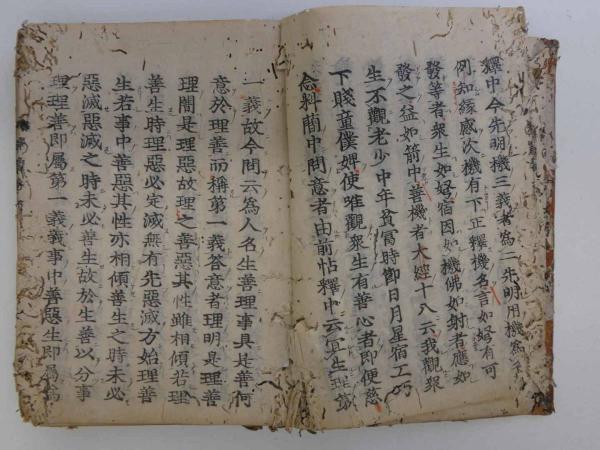 釋中今先明機三義者爲二先明用機爲
例知緣感次機有下正釋機名言如弩有可
發等者衆生如弩宿因如機佛如射者應如
發之益如箭中善機者大經十八云我觀衆
生不觀老少中年貧富時節日月星宿工巧
下賤童僕婢使唯觀衆生有善心者即便慈
念料簡中問意者由前帖釋中云生理第
一義故今問云爲人名生善理事具是善何
意於理善而稱第一義答意者理明是理善
理闇是理惡故理之善惡其性雖相傾若理
善生時理惡必定滅無有先惡滅方始理善
生若事中善惡其性亦相傾善生之時未必
惡滅惡滅之時未必善生故於生善以分事
理理善即屬第一義義事中善惡生即屬爲